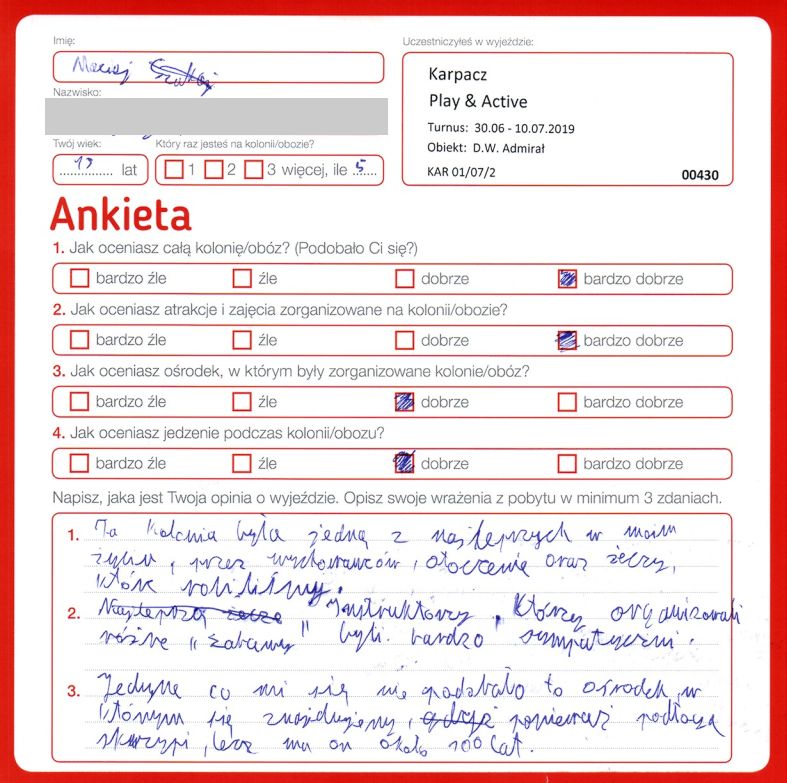 Imię:
Maciej
Nazwisko:
Twój wiek:
13 lat
Który raz jesteś na kolonii/obozie?
1 2 3 więcej, ile 5
Uczestniczyłeś w wyjeździe:
Karpacz
Play & Active
Turnus: 30.06 - 10.07.2019
Obiekt: D.W. Admirał
KAR 01/07/2 00430
Ankieta
1. Jak oceniasz całą kolonię/obóz? (Podobało Ci się?)
bardzo źle źle dobrze bardzo dobrze
2. Jak oceniasz atrakcje i zajęcia zorganizowane na kolonii/obozie?
bardzo źle źle dobrze bardzo dobrze
3. Jak oceniasz ośrodek, w którym były zorganizowane kolonie/obóz?
bardzo źle źle dobrze bardzo dobrze
4. Jak oceniasz jedzenie podczas kolonii/obozu?
bardzo źle źle dobrze bardzo dobrze
Napisz, jaka jest Twoja opinia o wyjeździe. Opisz swoje wrażenia z pobytu w minimum 3 zdaniach.
1. Ta kolonia była jedną z najlepszych w moim
życiu, przez wychowawców, otoczenie oraz rzeczy,
które robiliśmy.
2. Najlepszą Instruktorzy, którzy organizowali
różne "zabawy" byli bardzo sympatyczni.
3. Jedyne co mi się nie podobało to ośrodek, w
którym się znajdujemy, gdyż ponieważ podłoga
skrzypi, lecz ma on około 100 lat.